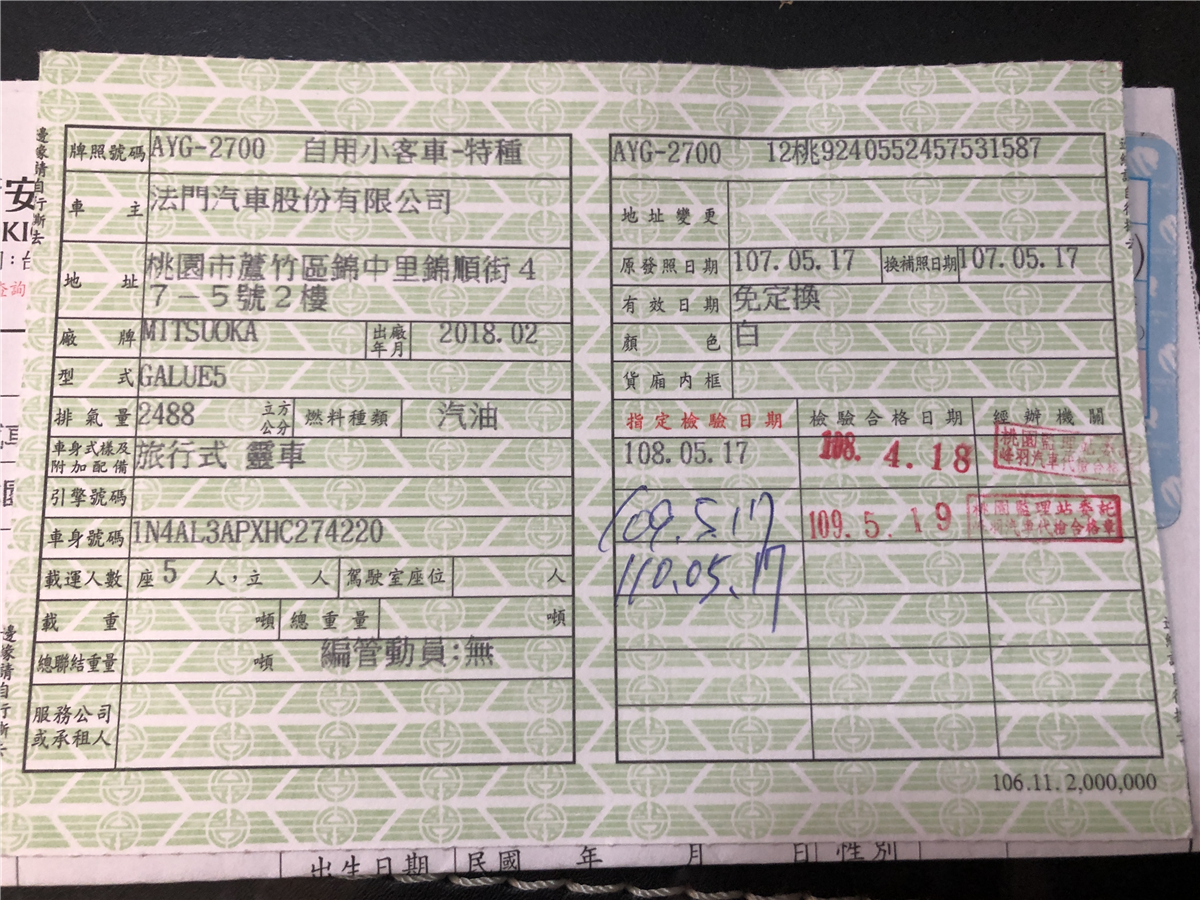 邊緣請自行撕去
牌照號碼 AYG-2700 自用小客車-特種
車主 法門汽車股份有限公司
地址 桃園市蘆竹區錦中里錦順街4
7－5號2樓
廠牌 MITSUOKA 出廠年月 2018.02
型式 GALUE5
排氣量 2488 立方公分 燃料種類 汽油
車身式樣及附加配備 旅行式 靈車
引擎號碼
車身號碼 1N4AL3APXHC274220
載運人數 座 5 人，立 人 駕駛室座位 人
載重 噸 總重量 噸
總聯結重量 噸 編管動員:無
服務公司或承租人
AYG-2700 12桃9240552457531587
地址變更
原發照日期 107.05.17 換補照日期 107.05.17
有效日期 免定換
顏色 白
貨廂內框
指定檢驗日期 檢驗合格日期 經辦機關
108.05.17 108.4.18 桃園監理站
峰羽汽車代檢合格
109.5.17 109.5.19 桃園監理站委託
羽汽車代檢合格章
110.05.17
106.11. 2,000,000
邊緣請自行撕去
安
KI
查詢
出生日期 民國 年 月 日 性別